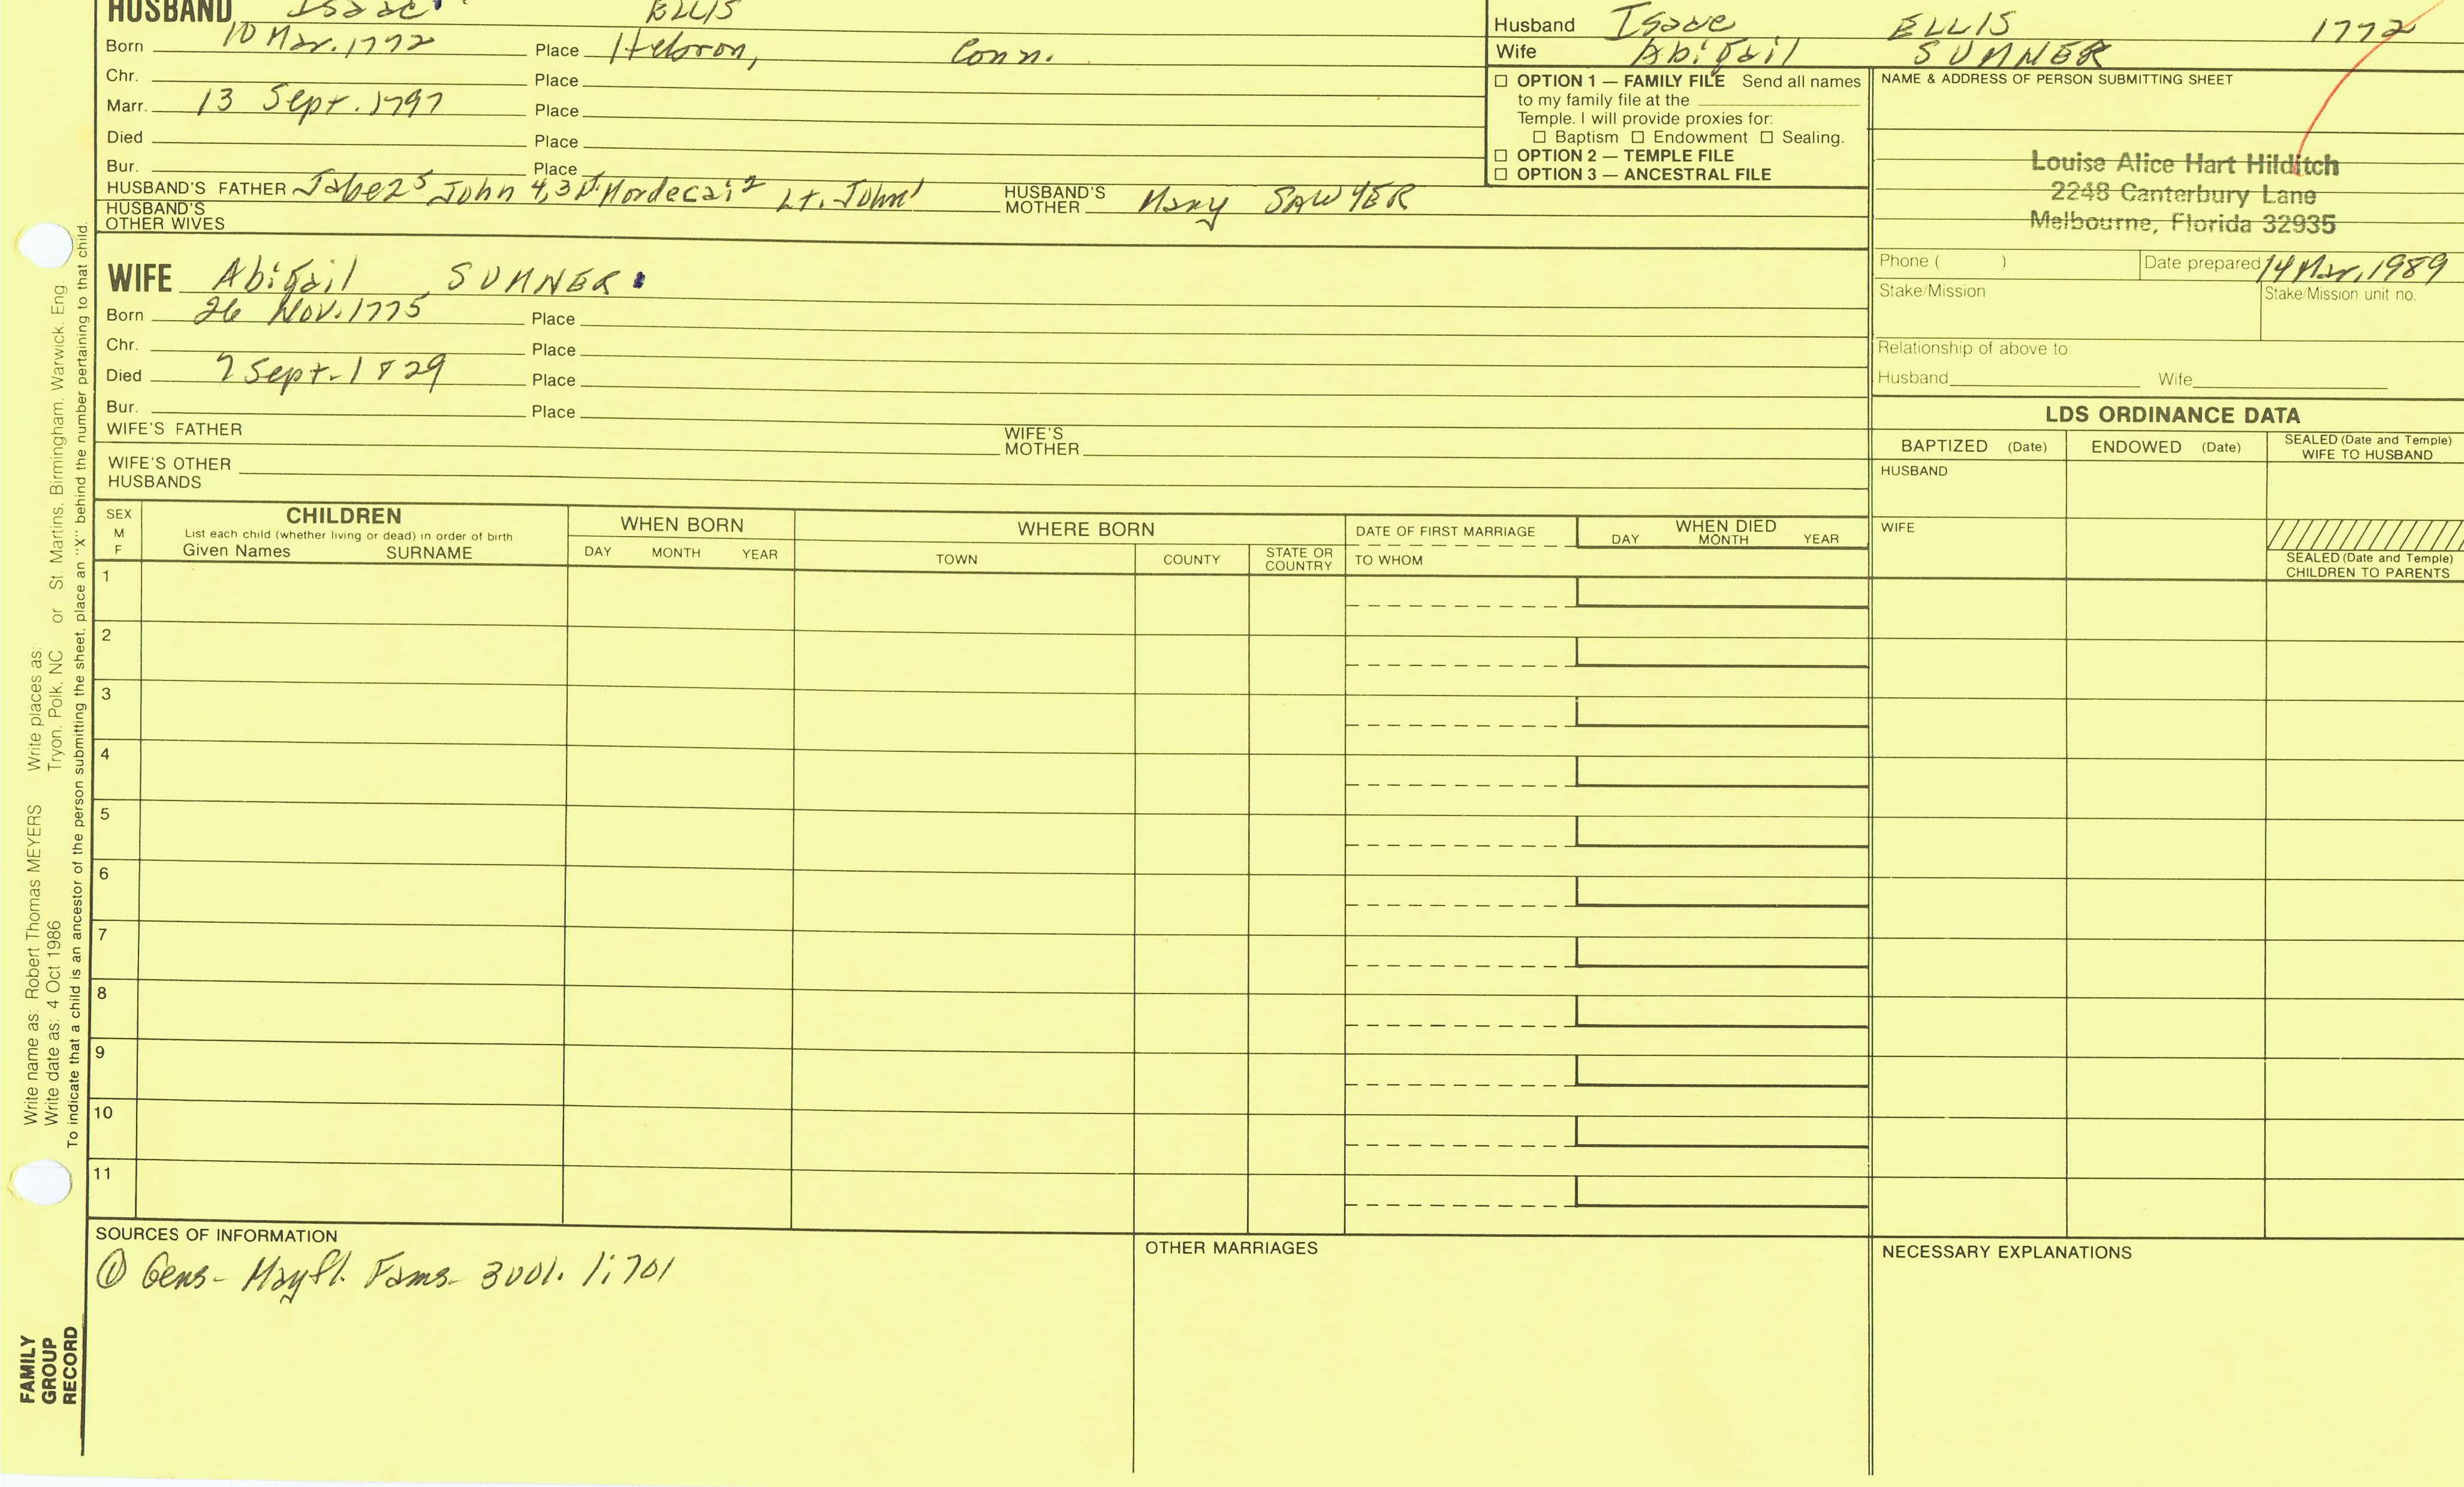 HUSBAND Isaac ELLIS
Born 10 Mar. 1772 Place Hebron, Conn.
Chr. Place
Marr. 13 Sept. 1797 Place
Died Place
Bur. Place
HUSBAND'S FATHER Jabez5 John 4,3 Mordecai2 Lt. John1 HUSBAND'S MOTHER Mary SAWYER
HUSBAND'S OTHER WIVES
WIFE Abigail SUMNER
Born 26 Nov. 1775 Place
Chr. Place
Died 7 Sept. 1829 Place
Bur. Place
WIFE'S FATHER WIFE'S MOTHER
WIFE'S OTHER HUSBANDS
Husband Isaac ELLIS 1772
Wife Abigail SUMNER
☐ OPTION 1 — FAMILY FILE Send all names
to my family file at the
Temple. I will provide proxies for:
☐ Baptism ☐ Endowment ☐ Sealing.
☐ OPTION 2 — TEMPLE FILE
☐ OPTION 3 — ANCESTRAL FILE
NAME & ADDRESS OF PERSON SUBMITTING SHEET
Louise Alice Hart Hilditch
2248 Canterbury Lane
Melbourne, Florida 32935
Phone ( ) Date prepared 14 Mar. 1989
Stake/Mission Stake/Mission unit no.
Relationship of above to:
Husband Wife
LDS ORDINANCE DATA
BAPTIZED (Date) ENDOWED (Date) SEALED (Date and Temple) WIFE TO HUSBAND
HUSBAND
WIFE
SEALED (Date and Temple)
CHILDREN TO PARENTS
SEX M F
CHILDREN
List each child (whether living or dead) in order of birth
Given Names SURNAME
WHEN BORN
DAY MONTH YEAR
WHERE BORN
TOWN COUNTY STATE OR COUNTRY
DATE OF FIRST MARRIAGE
TO WHOM
WHEN DIED
DAY MONTH YEAR
1
2
3
4
5
6
7
8
9
10
11
SOURCES OF INFORMATION
① Gens- Mayfl. Fams- 3vol. 1:701
OTHER MARRIAGES
NECESSARY EXPLANATIONS
Write name as: Robert Thomas MEYERS Write places as:
Write date as: 4 Oct 1986 Tryon, Polk, NC or St. Martins, Birmingham, Warwick, Eng
To indicate that a child is an ancestor of the person submitting the sheet, place an "X" behind the number pertaining to that child.
FAMILY
GROUP
RECORD